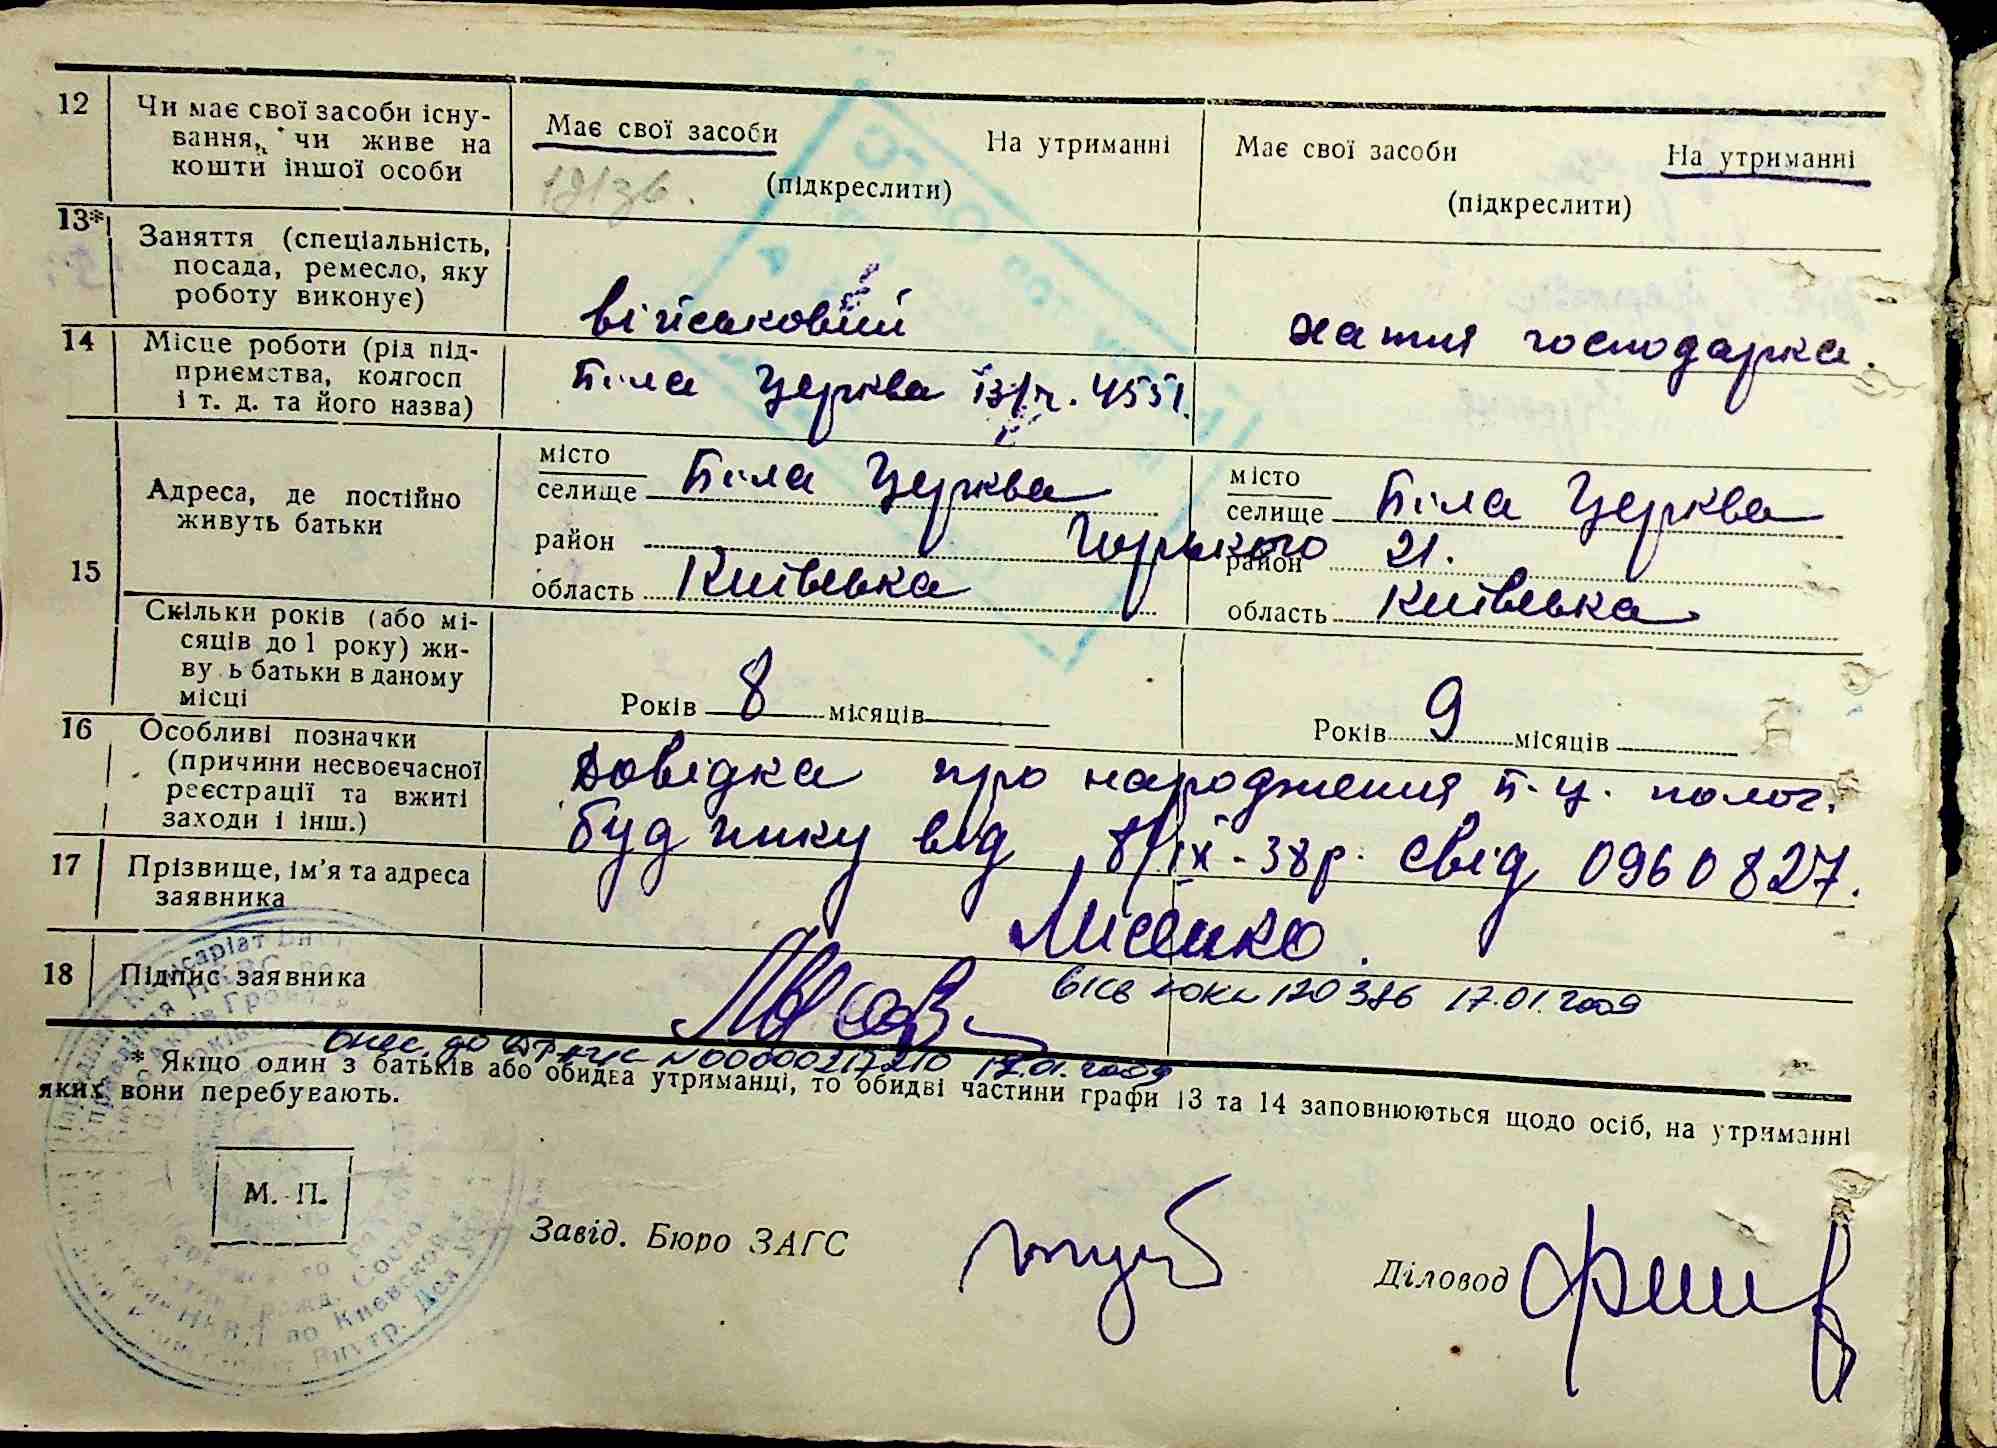 12 Чи має свої засоби існу-
вання, чи живе на
кошти іншої особи
Має свої засоби На утриманні
(підкреслити)
Має свої засоби На утриманні
(підкреслити)
13* Заняття (спеціальність,
посада, ремесло, яку
роботу виконує)
військовий
хатня господарка.
14 Місце роботи (рід під-
приємства, колгосп
і т. д. та його назва)
Біла Церква в/ч. 4551.
15
Адреса, де постійно
живуть батьки
місто
селище Біла Церква
район
область Київська
Горького 21.
місто
селище Біла Церква
район
область Київська
Скільки років (або мі-
сяців до 1 року) жи-
ву ь батьки в даному
місці
Років 8 місяців
Років 9 місяців
16 Особливі позначки
(причини несвоєчасної
реєстрації та вжиті
заходи і інш.)
Довідка про народження Б.Ц. полог.
будинку від 8/IX-38р. Свід 0960827.
17 Прізвище, ім'я та адреса
заявника
Лисенко.
18 Підпис заявника
120386 17.01.2009
внес. до N00000217210 17.01.2009
* Якщо один з батьків або обидва утриманці, то обидві частини графи 13 та 14 заповнюються щодо осіб, на утриманні
яких вони перебувають.
М. П.
Завід. Бюро ЗАГС
Діловод